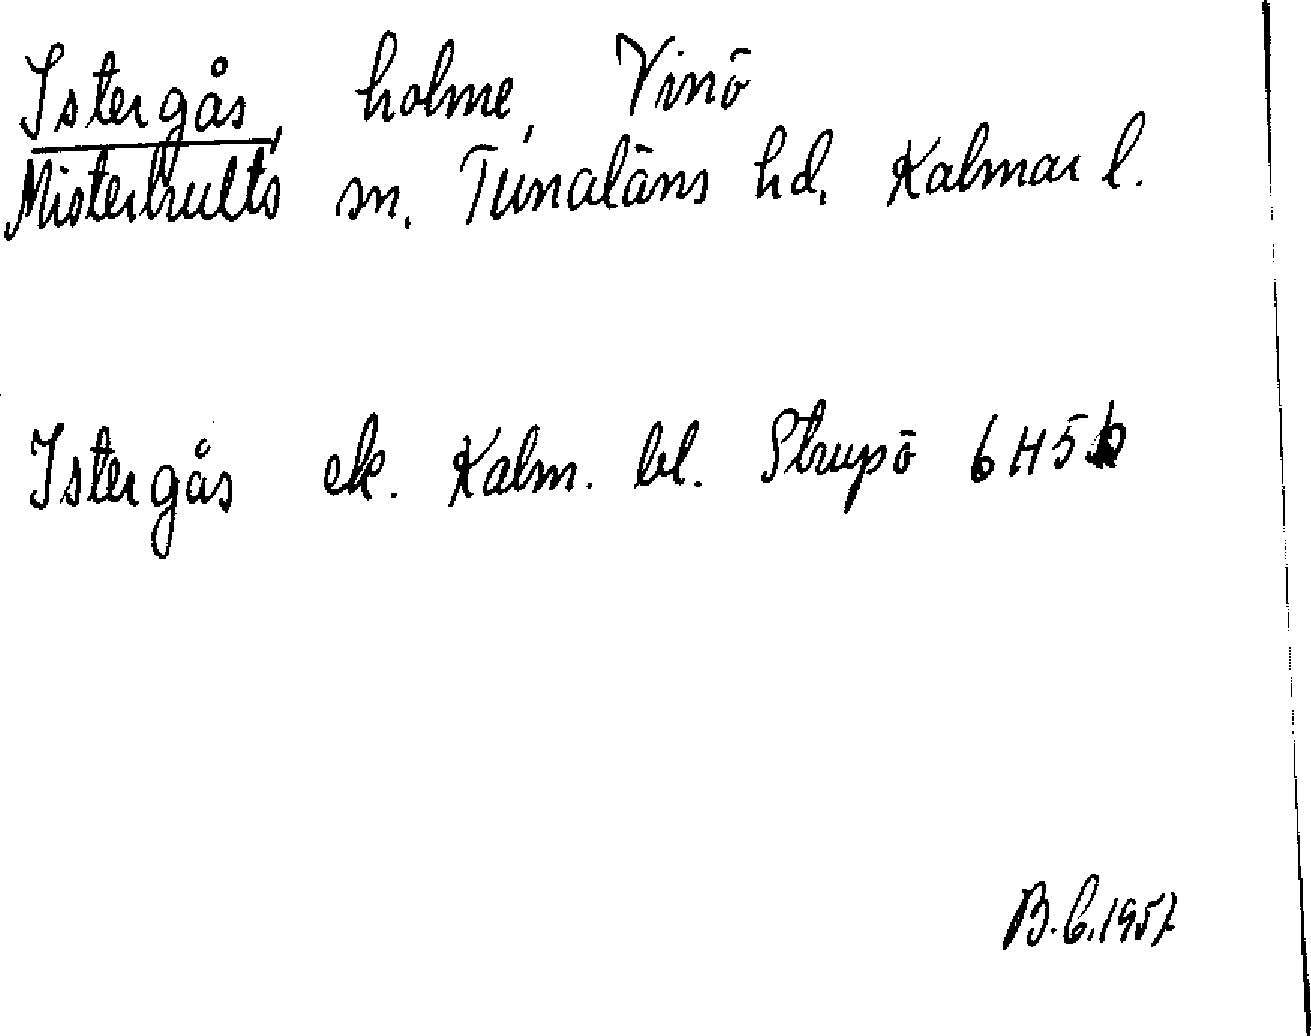 Istergås, holme, Vinö
Misterhults sn. Tunaläns hd. Kalmar l.
Istergås ek. Kalm. bl. Strupö 6H5b
B.C. 1957